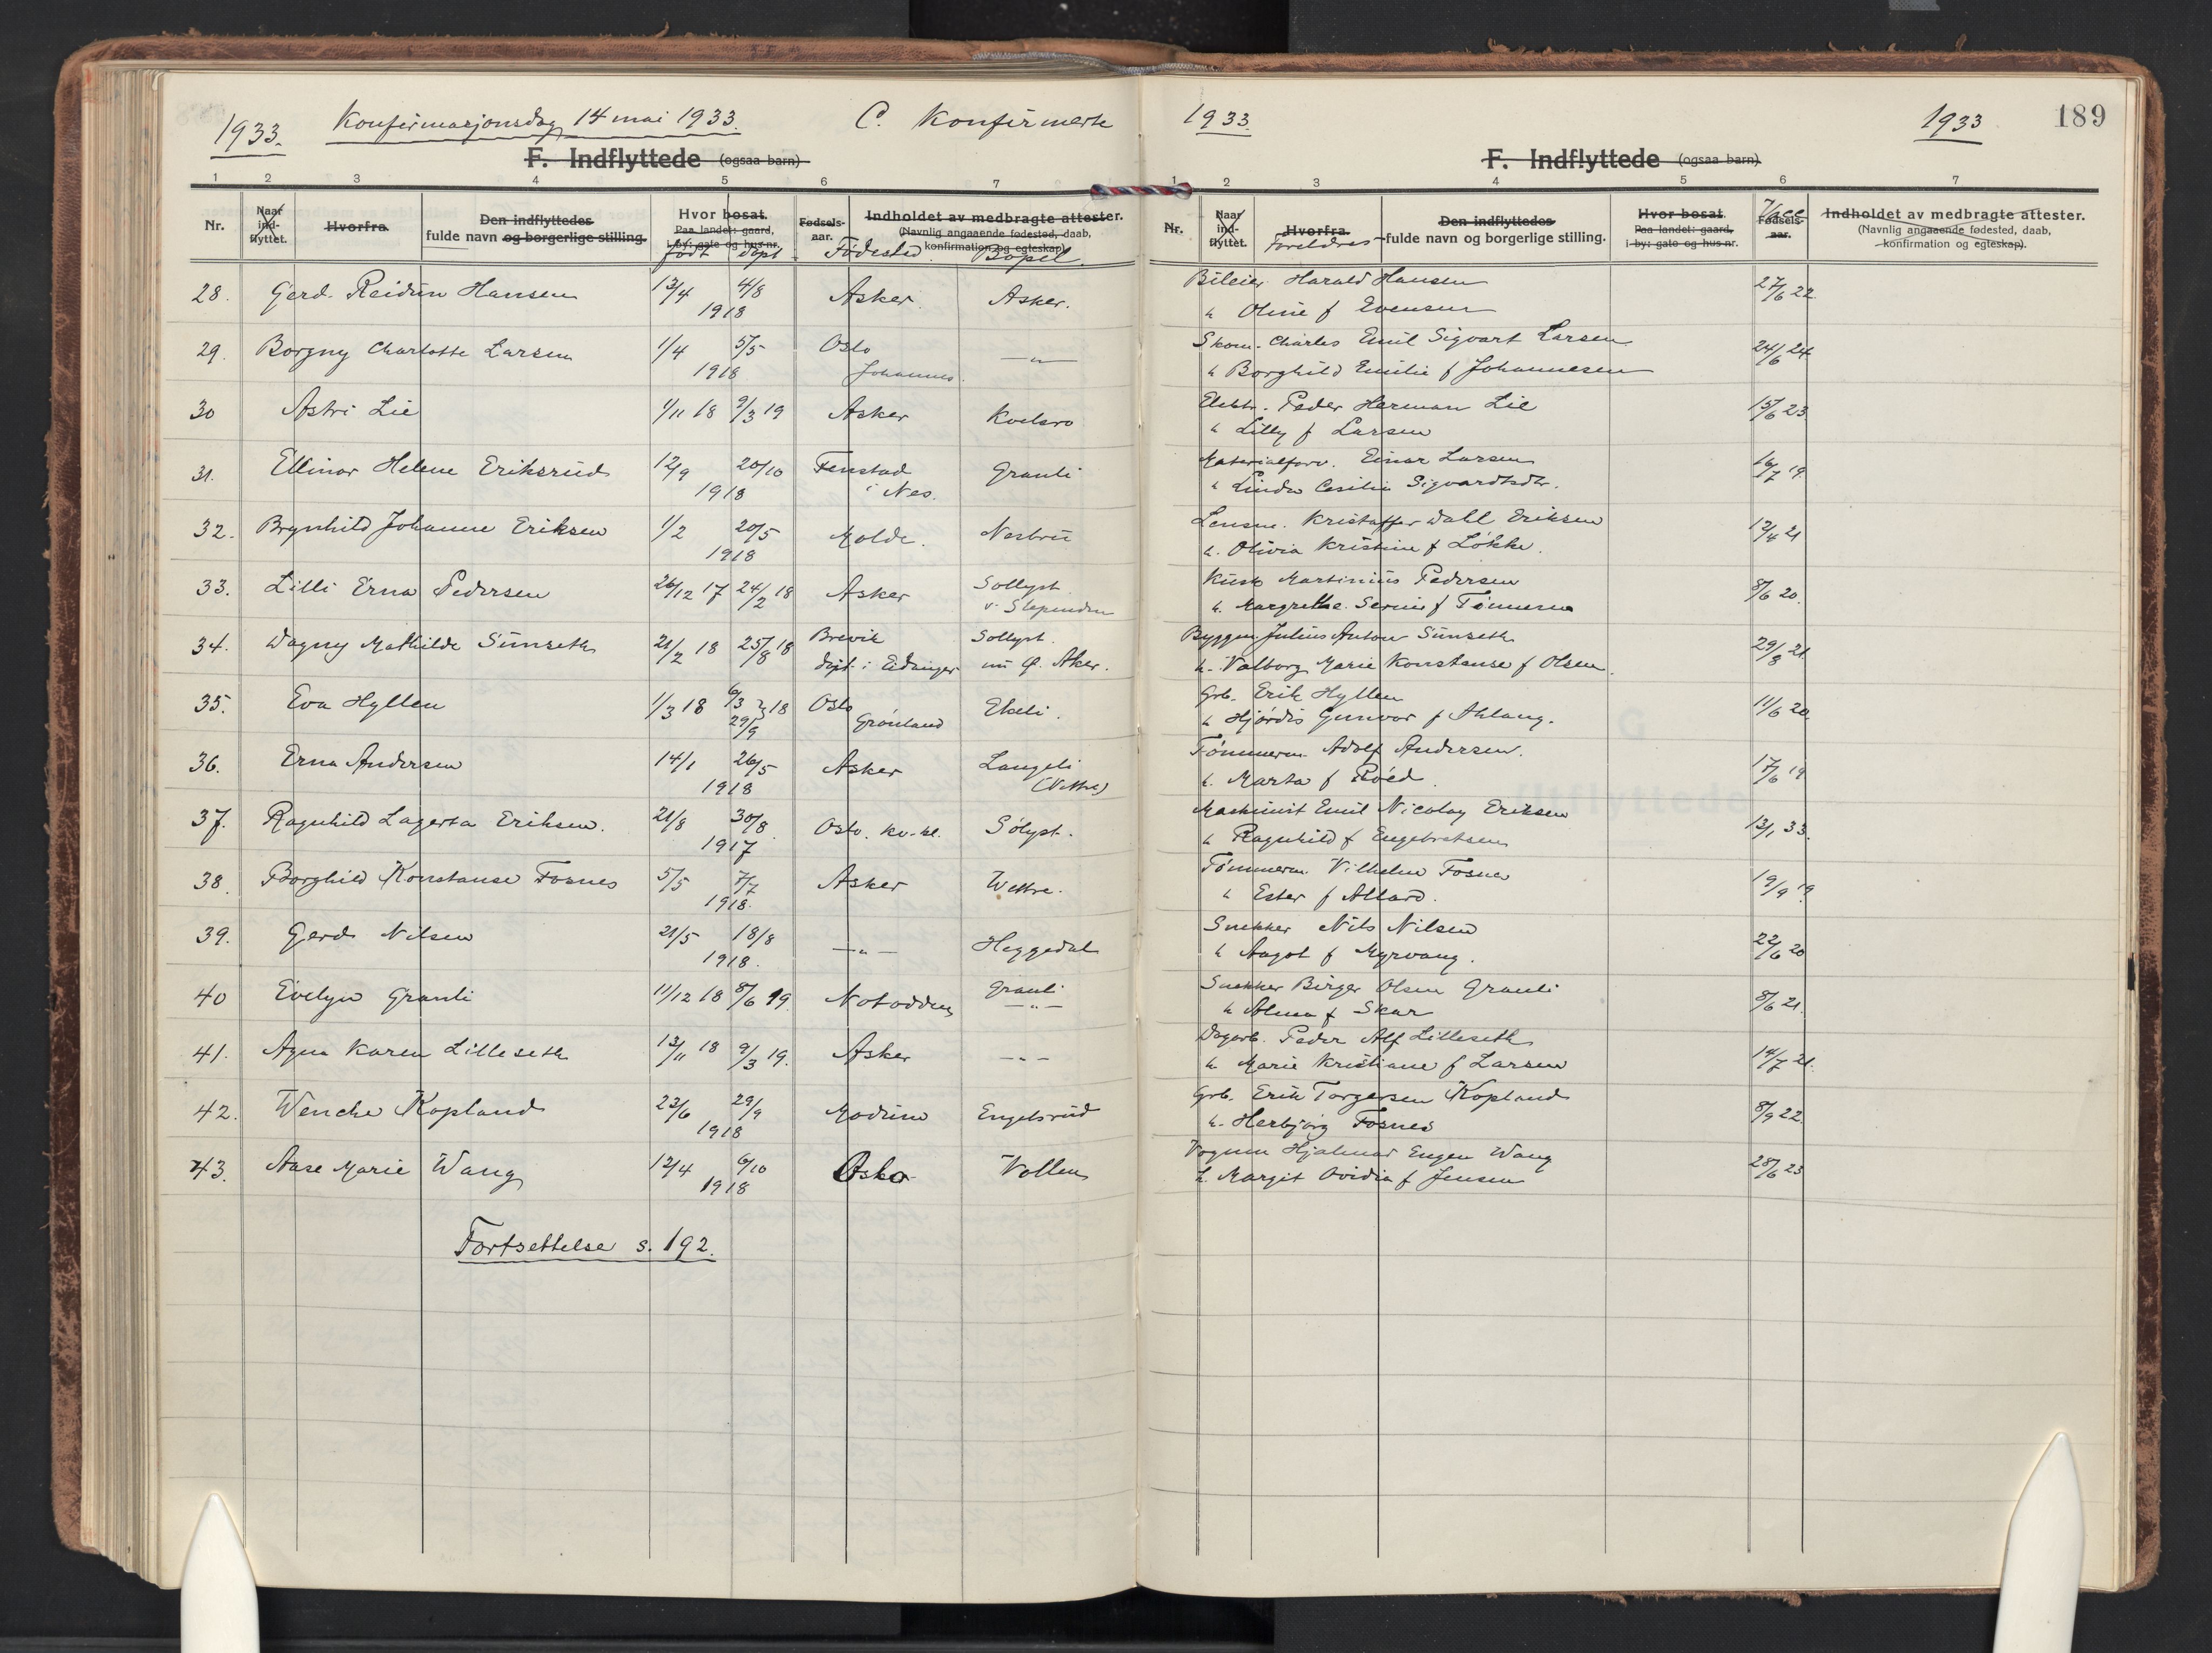 1933.
Konfirmasjonsdag 14 mai 1933.
C. Konfirmerte
F. Indflyttede (ogsaa barn)
1 2 3 4 5 6 7
Nr.
Naar ind-flyttet.
Hvorfra.
Den indflyttedes fulde navn og borgerlige stilling.
Hvor bosat. Paa landet: gaard, i by: gate og hus-nr.
født døpt
Fødsels-aar.
Indholdet av medbragte attester.
(Navnlig angaaende fødested, daab, konfirmation og egteskap).
Fødested. Bopel.
28. Gerd Reidun Hansen 13/4 4/8 1918 Asker. Asker.
29. Borgny Charlotte Larsen 1/4 5/5 1918 Oslo Johannes. —"—
30 Astri Lie 1/11 18 9/3 19 Asker Kvelsro
31. Ellinor Helene Eriksrud 12/9 20/10 1918 Fenstad i Nes. Granli
32. Brynhild Johanne Eriksen 1/2 20/5 1918 Molde. Nesbru
33. Lilli Erna Pedersen 26/12 17 24/2 18 Asker Sollyst v. Slependen
34. Dagny Mathilde Sunseth 21/2 18 25/8 18 Brevik døpt i Eidanger Sollyst. nu Ø. Aker.
35. Eva Hyllen 1/3 18 6/3 29/9 18 Oslo Grønland Ekeli.
36. Erna Andersen 14/1 26/5 1918 Asker Langeli (Vettre)
37. Ragnhild Lagerta Eriksen. 21/8 30/8 1917 Oslo. kv.-kl. Sólyst.
38. Borghild Konstanse Fosnes 5/5 7/7 1918. Asker Wettre.
39. Gerd Nilsen 21/5 18/8 1918. —"— Heggedal
40 Evelyn Granli 11/12 18 8/6 19. Notodden Granli —"—
41. Agna Karen Lilleseth 13/11 18 9/3 19. Asker —"—
42. Wenche Kopland 23/6 29/9 1918 Modum Engelsrud
43. Aase Marie Wang 12/4 6/10 1918 Oslo Vollen
Fortsettelse s. 192.
1933.
1933
189
F. Indflyttede (ogsaa barn)
1 2 3 4 5 6 7
Nr.
Naar ind-flyttet.
Hvorfra.
Foreldres
Den indflyttedes fulde navn og borgerlige stilling.
Hvor bosat. Paa landet: gaard, i by: gate og hus-nr.
Vacc
Fødsels-aar.
Indholdet av medbragte attester.
(Navnlig angaaende fødested, daab, konfirmation og egteskap).
Bileier Harald Hansen 27/6 22
h Oline f Evensen
Skom. Charles Emil Sigvart Larsen 24/6 24
h Borghild Emilie f Johannesen
Elektr. Peder Herman Lie 15/6 23
h Lilly f Larsen
Materialforv. Einar Larsen 16/7 19
h Linda Cesilie Sigvardtsdtr.
Lensm. Kristoffer Dahl Eriksen 12/4 21
h. Olivia Kristine f Løkke.
Kusk Martinius Pedersen 8/6 20.
h. Margrethe Serine f Tønnesen
Byggm. Julius Anton Sunseth 29/8 21
h. Valborg Marie Konstanse f Olsen.
Grb. Erik Hyllen 11/6 20
h Hjørdis Gunvor f Ahlang.
Tømmerm. Adolf Andersen. 17/6 19
h. Marta f Röed.
Maskinist Emil Nicolay Eriksen 13/1 33.
h Ragnhild f Engebretsen
Tømmerm. Vilhelm Fosnes 19/9 19
h Ester f Allard.
Snekker Nils Nilsen 22/6 20
h Aagot f Myrvang.
Snekker Birger Olsen Granli 8/6 21.
h Alma f Skar
Dagarb. Peder Alf Lilleseth 14/7 21.
h. Marie Kristiane f Larsen
Grb. Erik Torgersen Kopland 8/9 22
h. Herbjörg Fosnes
Vognm Hjalmar Eugen Wang 28/6 23
h. Margit Ovidia f Jensen